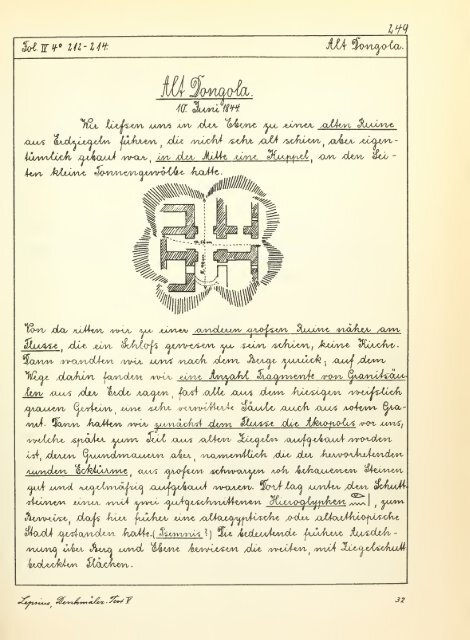 249
Tol II 4° 212-214. Alt Dongola.
Alt Dongola.
10. Juni 1844
Wir liefsen uns in der Ebene zu einer alten Ruine
aus Erdziegeln führen, die nicht sehr alt schien, aber eigen-
tümlich gebaut war, in der Mitte eine Kuppel, an den Sei-
ten kleine Tonnengewölbe hatte.
Von da ritten wir zu einer anderen grofsen Ruine näher am
Flusse, die ein Schlofs gewesen zu sein schien, keine Kirche.
Dann wandten wir uns nach dem Berge zurück; auf dem
Wege dahin fanden wir eine Anzahl Fragmente von Granitsäu-
len aus der Erde ragen, fast alle aus dem hiesigen weifslich
grauen Gestein, eine sehr verwitterte Säule auch aus rotem Gra-
nit. Dann hatten wir zunächst dem Flusse die Akropolis vor uns,
welche später zum Teil aus alten Ziegeln aufgebaut worden
ist, deren Grundmauern aber, namentlich die der hervortretenden
runden Ecktürme, aus grofsen schwarzen roh behauenen Steinen
gut und regelmäfsig aufgebaut waren. Dort lag unter den Schutt-
steinen einer mit zwei gutgeschnittenen Hieroglyphen, zum
Beweise, dafs hier früher eine altaegyptische oder altaethiopische
Stadt gestanden hatte. (Psemnis?) Die bedeutende frühere Ausdeh-
nung über Berg und Ebene bewiesen die weiten, mit Ziegelschutt
bedeckten Flächen.
Lepsius, Denkmäler. Text V 32